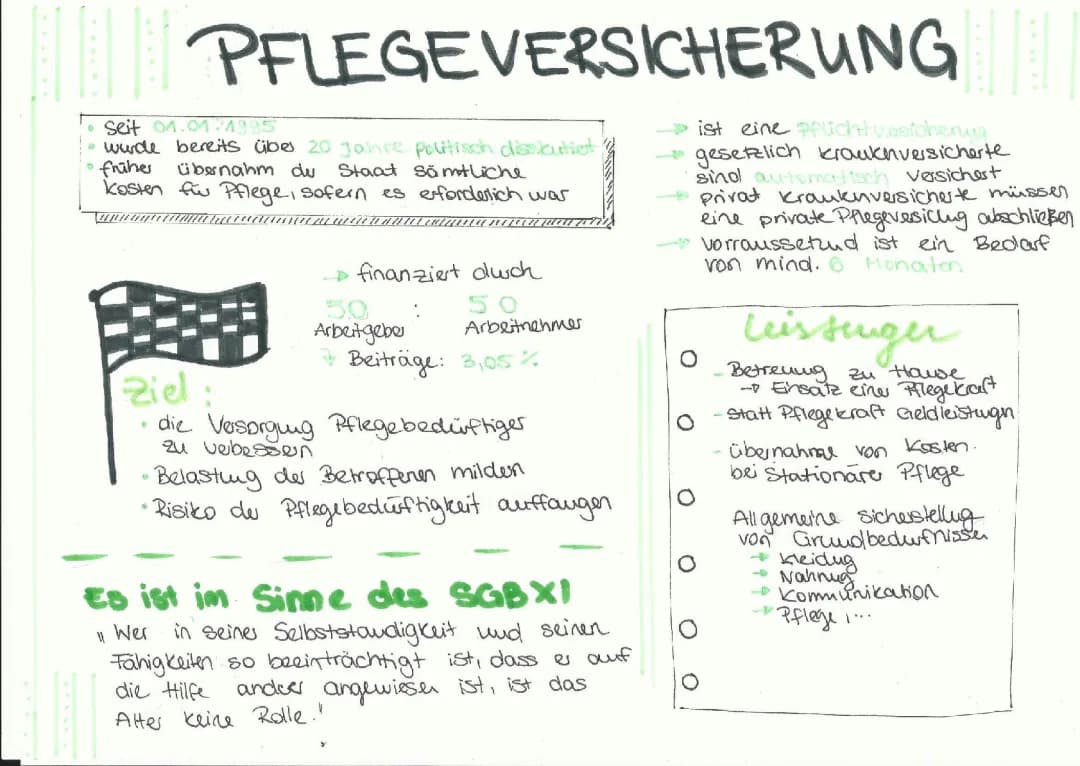 PFLEGEVERSICHERUNG
• Seit 01.01.1995
• wurde bereits über 20 Jahre politisch diskutiert
• früher übernahm der Staat sämtliche
Kosten für Pflege, sofern es erforderlich war
→ ist eine Pflichtversicherung
→ gesetzlich krankenversicherte
sind automatisch versichert
→ privat krankenversicherte müssen
eine private Pflegeversicherung abschließen
→ vorraussetzund ist ein Bedarf
von mind. 6 Monaten
→ finanziert durch
50 : 50
Arbeitgeber Arbeitnehmer
→ Beiträge: 3,05 %
Ziel:
• die Versorgung Pflegebedürftiger
zu verbessern
• Belastung der Betroffenen mildern
• Risiko der Pflegebedürftigkeit auffangen
Leistungen
- Betreuung zu Hause
→ Einsatz einer Pflegekraft
- statt Pflegekraft Geldleistungen
- Übernahme von Kosten
bei Stationärer Pflege
Allgemeine Sicherstellug
von Grundbedürfnissen
→ Kleidug
→ Nahrug
→ Kommunikation
→ Pflege,...
Es ist im Sinne des SGB XI
„Wer in seiner Selbstständigkeit und seinen
Fähigkeiten so beeinträchtigt ist, dass er auf
die Hilfe anderer angewiesen ist, ist das
Alter keine Rolle."